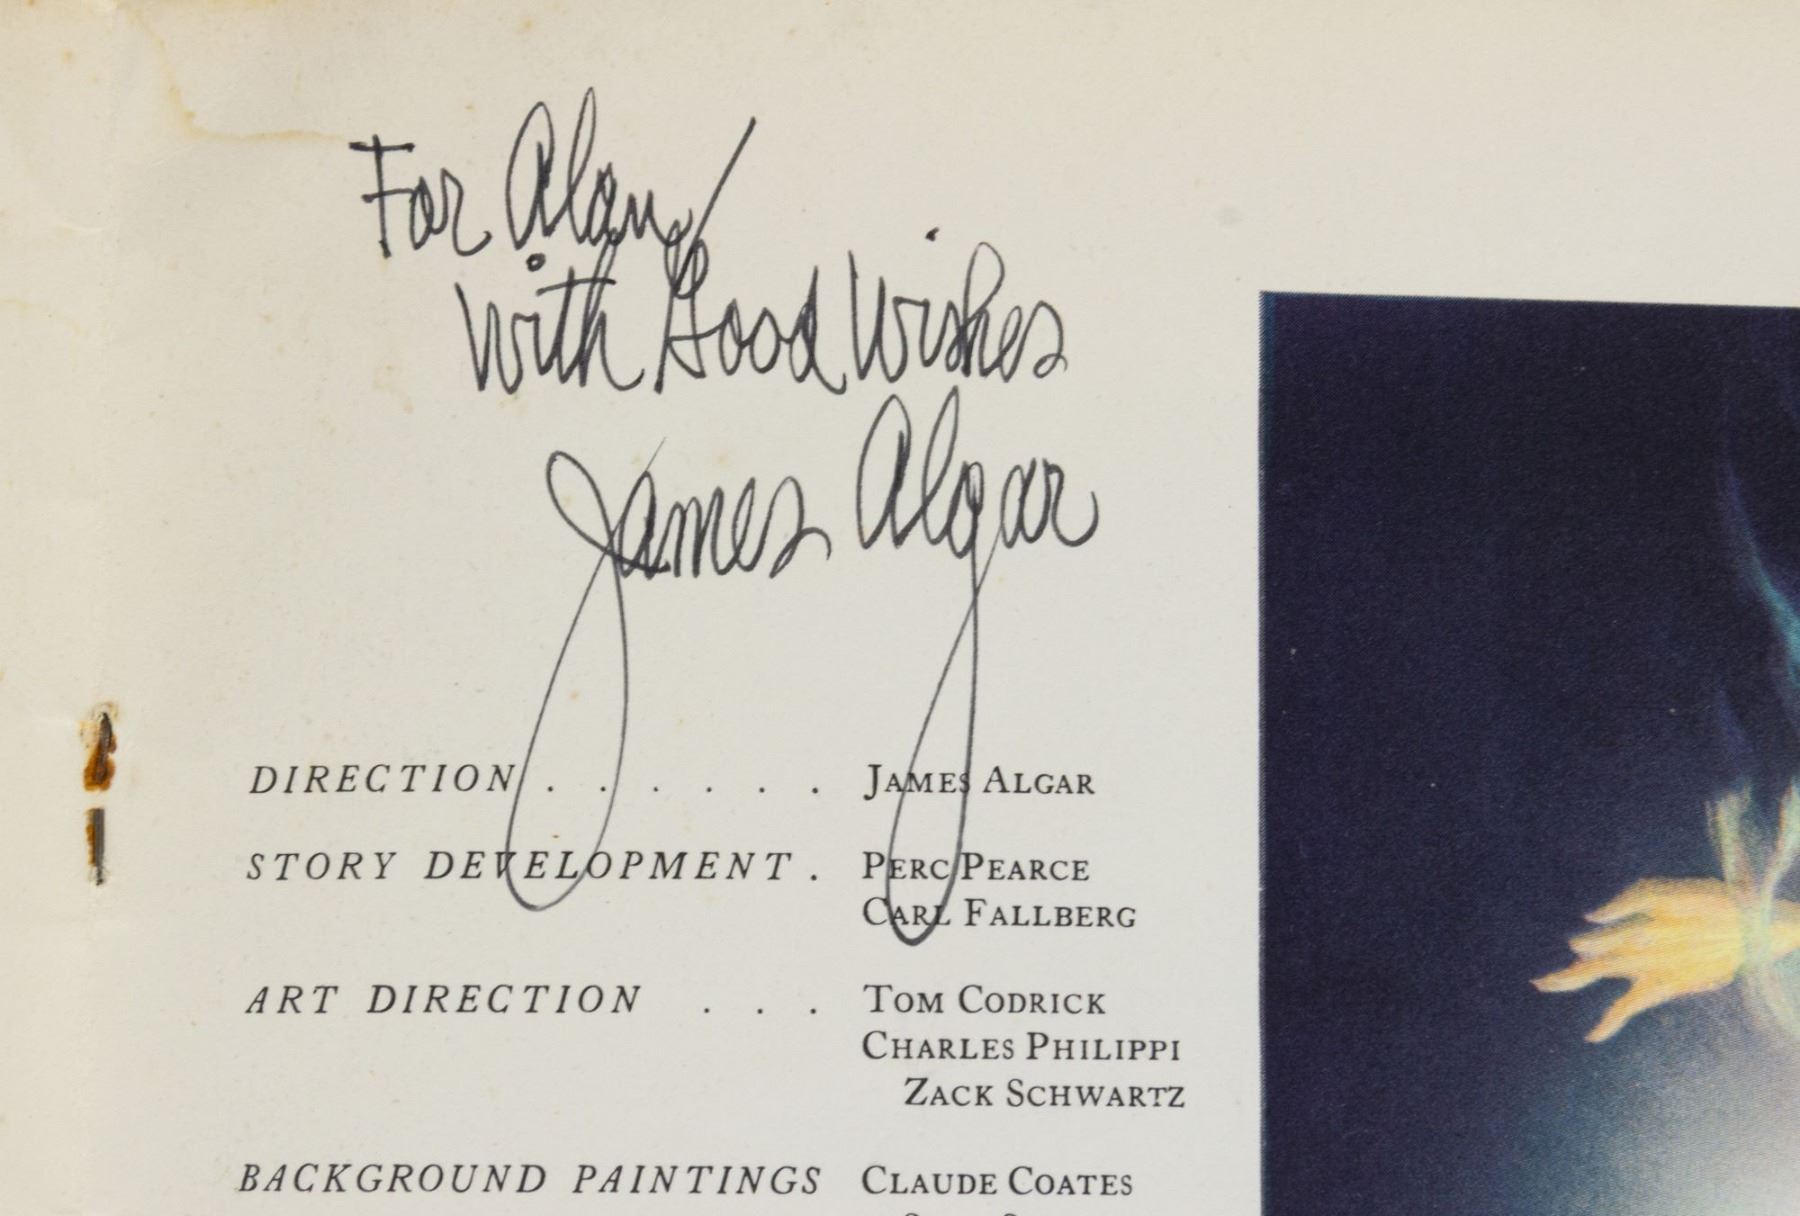 For Alan,
With Good Wishes
James Algar
DIRECTION . . . . . . JAMES ALGAR
STORY DEVELOPMENT . PERC PEARCE
CARL FALLBERG
ART DIRECTION . . . TOM CODRICK
CHARLES PHILIPPI
ZACK SCHWARTZ
BACKGROUND PAINTINGS CLAUDE COATES